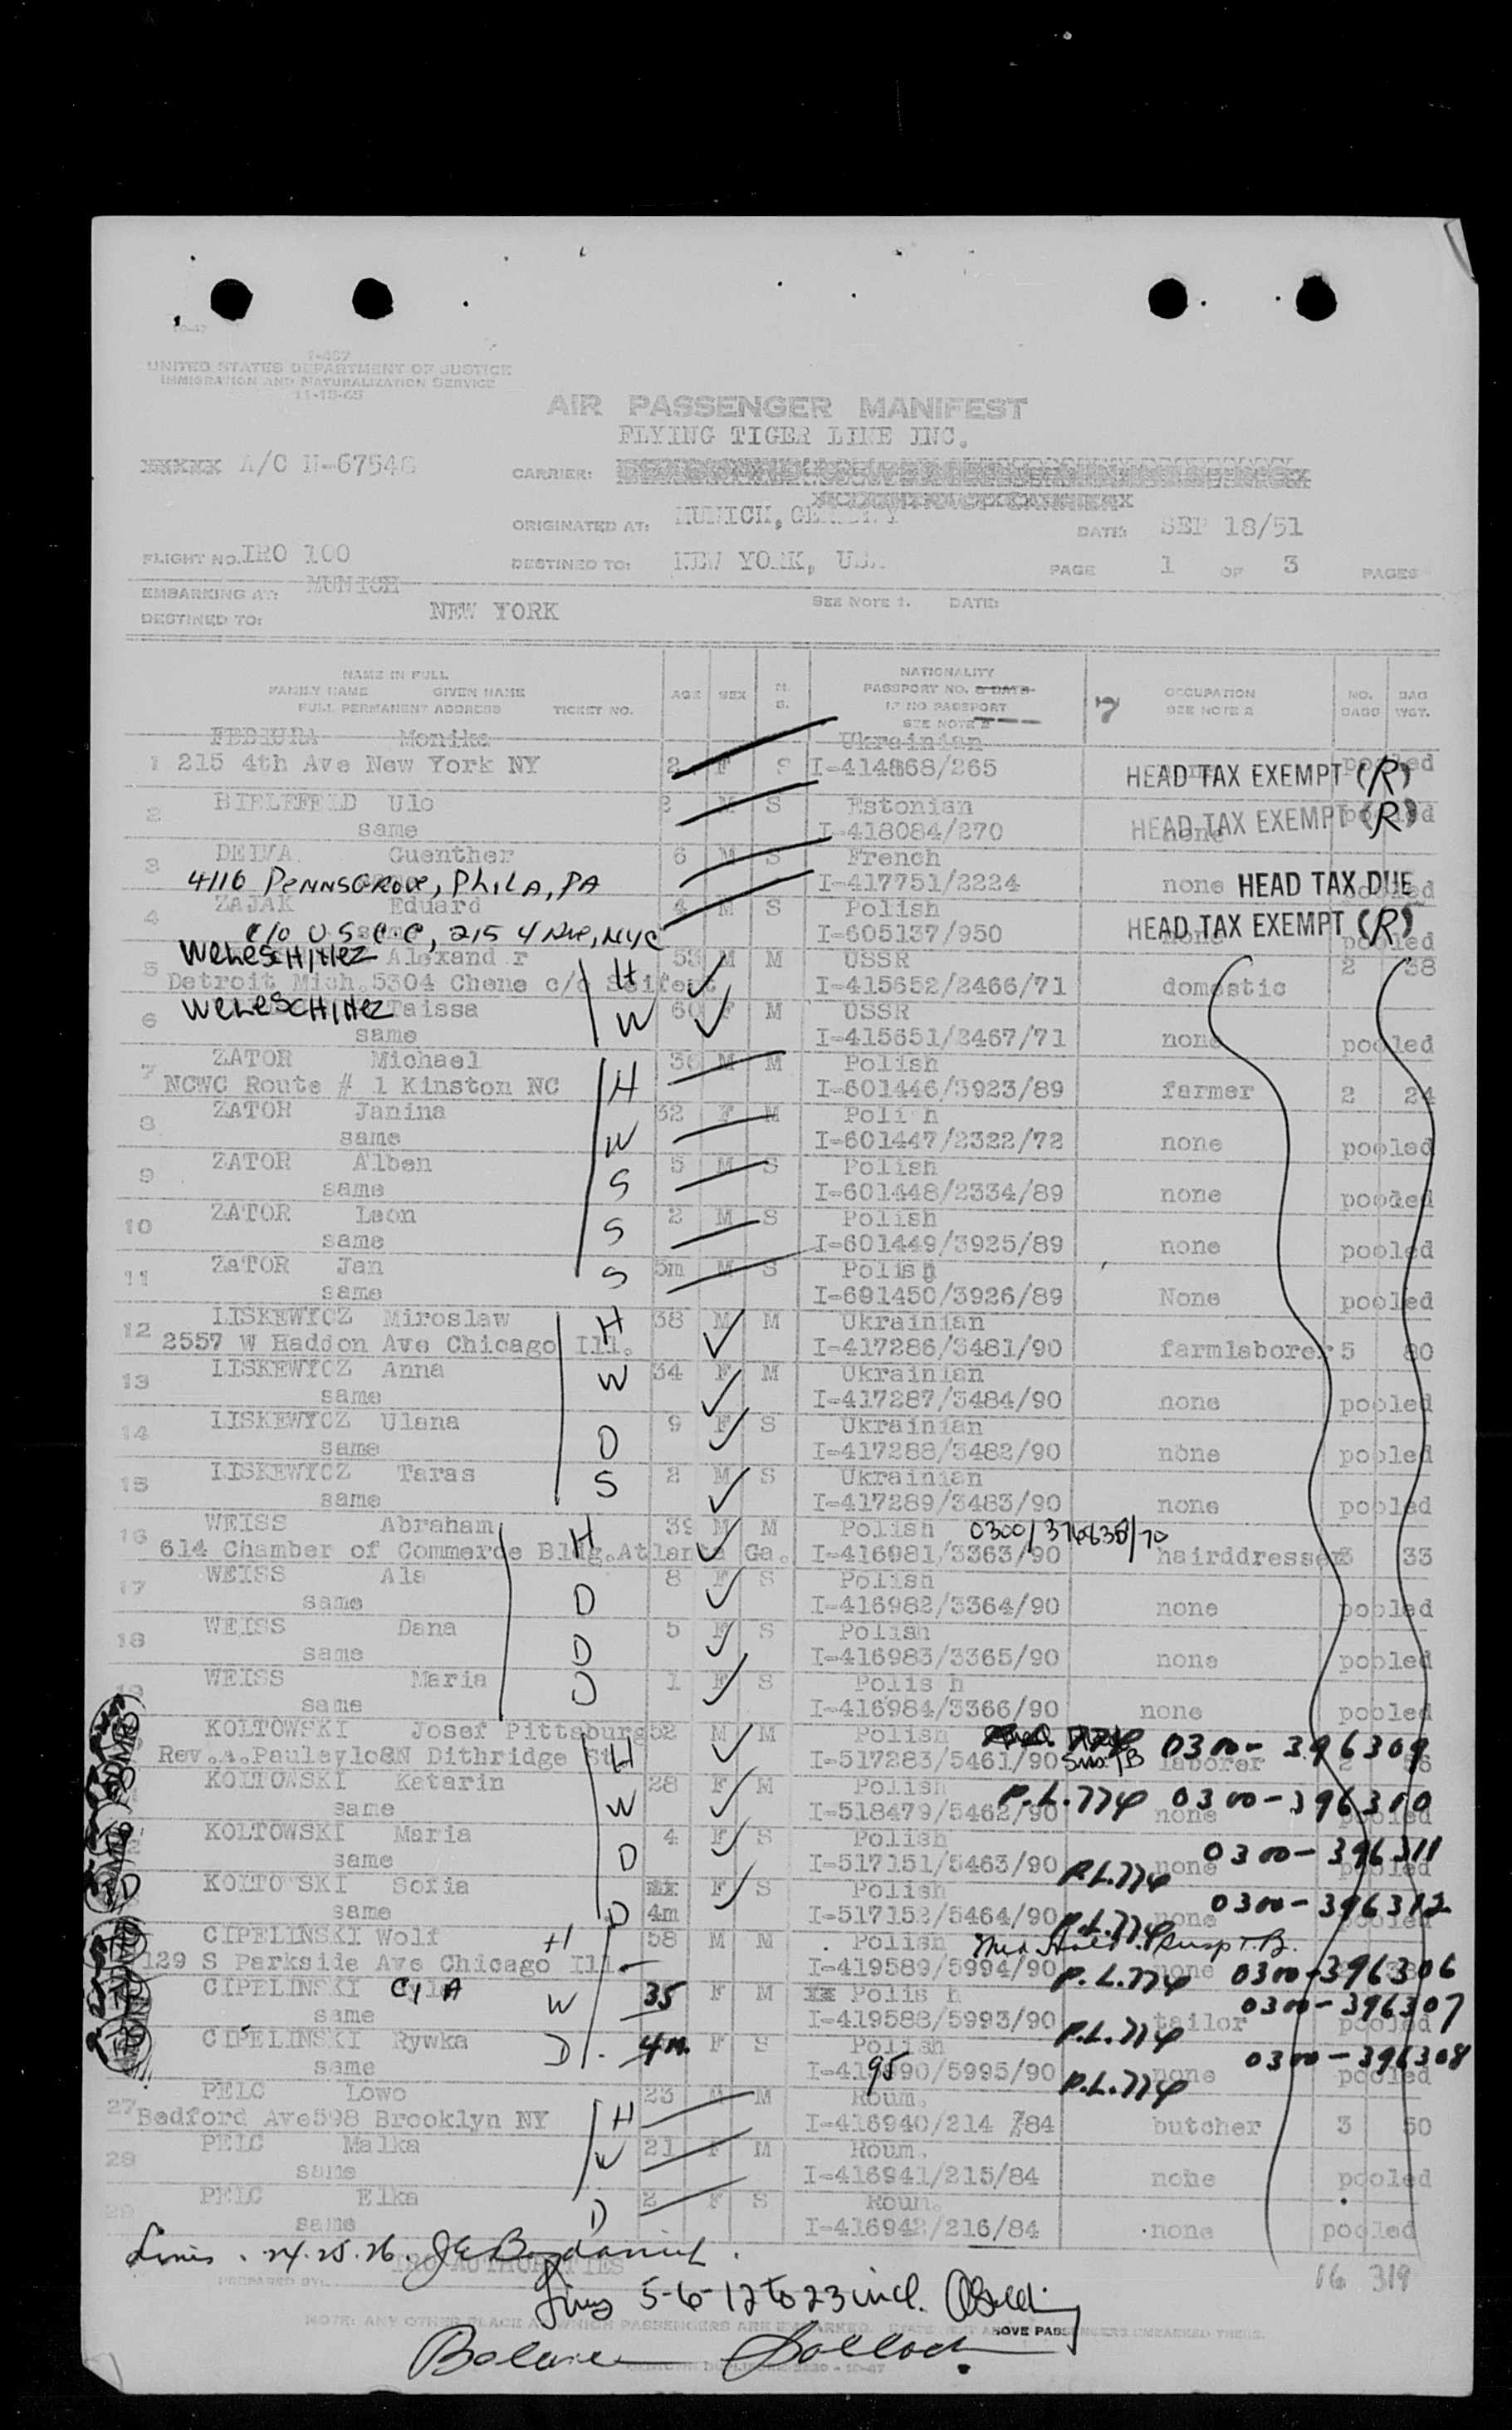 10-47
I-467
UNITED STATES DEPARTMENT OF JUSTICE
IMMIGRATION AND NATURALIZATION SERVICE
AIR PASSENGER MANIFEST
FLYING TIGER LINE INC.
A/C N-67548 CARRIER:
ORIGINATED AT: MUNICH, GERMANY DATE: SEP 18/51
FLIGHT NO. IRO 100 DESTINED TO: NEW YORK, USA PAGE 1 OF 3 PAGES
EMBARKING AT: MUNICH SEE NOTE 1. DATE:
DESTINED TO: NEW YORK
NAME IN FULL AGE SEX M. S. NATIONALITY 7 OCCUPATION NO. BAG
FAMILY NAME GIVEN NAME PASSPORT NO. & DATE SEE NOTE 2 BAGS WGT.
FULL PERMANENT ADDRESS TICKET NO. IF NO PASSPORT
SEE NOTE 2
FEDIURA Monika Ukrainian
1 215 4th Ave New York NY 2 F S I-414868/265 HEAD TAX EXEMPT (R) pooled
2 BIELEFELD Ulo 2 M S Estonian
same I-418084/270 none HEAD TAX EXEMPT (R) pooled
3 DEIVA Guenther 6 M S French
4116 PENNSGROVE, PHILA, PA I-417751/2224 none HEAD TAX DUE pooled
4 ZAJAK Eduard 4 M S Polish
c/o U S C C, 215 4 Ave, NYC I-605137/950 none HEAD TAX EXEMPT (R) pooled
5 WELESCHITEZ Alexand r H 53 M M USSR 2 38
Detroit Mich. 5304 Chene c/o Seifert I-415652/2466/71 domestic
6 WELESCHITEZ Taissa W 60 F M USSR
same I-415651/2467/71 none pooled
7 ZATOR Michael H 36 M M Polish
NCWC Route # 1 Kinston NC I-601446/3923/89 farmer 2 24
8 ZATOR Janina W 32 F M Poli h
same I-601447/2322/72 none pooled
9 ZATOR Alben S 5 M S Polish
same I-601448/2334/89 none pooled
10 ZATOR Leon S 2 M S Polish
same I-601449/3925/89 none pooled
11 ZaTOR Jan S 5m M S Polish
same I-601450/3926/89 None pooled
12 LISKEWYCZ Miroslaw H 38 M M Ukrainian
2557 W Haddon Ave Chicago Ill. I-417286/3481/90 farmlaborer 5 80
13 LISKEWYCZ Anna W 34 F M Ukrainian
same I-417287/3484/90 none pooled
14 LISKEWYCZ Ulana D 9 F S Ukrainian
same I-417288/3482/90 none pooled
15 LISKEWYCZ Taras S 2 M S Ukrainian
same I-417289/3483/90 none pooled
16 WEISS Abraham H 39 M M Polish
614 Chamber of Commerce Bldg. Atlanta Ga. I-416981/3363/90 hairddresser 3 33
17 WEISS Ala D 8 F S Polish
same I-416982/3364/90 none pooled
18 WEISS Dana D 5 F S Polish
same I-416983/3365/90 none pooled
19 WEISS Maria D 1 F S Polis h
same I-416984/3366/90 none pooled
KOLTOWSKI Josef Pittsburg 52 M M Polish 0300-396309
Rev.A.Pauleylo8N Dithridge St. H I-517283/5461/90 laborer 2
KOLTOWSKI Katarin W 28 F M Polish P.L.774 0300-396310
same I-518479/5462/90 none pooled
KOLTOWSKI Maria D 4 F S Polish 0300-396311
same I-517151/5463/90 P.L.774 none pooled
KOLTOWSKI Sofia D F S Polish 0300-396312
same 4m I-517152/5464/90 P.L.774 none pooled
CIPELINSKI Wolf H 58 M M Polish Susp T.B.
129 S Parkside Ave Chicago Ill. I-419589/5994/90 P.L.774 none 0300-396306
CIPELINSKI CylA W 35 F M Polis h 0300-396307
same I-419588/5993/90 P.L.774 tailor pooled
CIPELINSKI Rywka D 4m. F S Polish 0300-396308
same I-419590/5995/90 P.L.774 none pooled
27 PELC Lowo H 23 M M Roum.
Bedford Ave598 Brooklyn NY I-416940/214 /84 butcher 3 50
28 PELC Malka W 21 F M Roum.
same I-416941/215/84 none pooled
29 PELC Elka D 2 F S Roun.
same I-416942/216/84 none pooled
Lines. 24.25.26.
IRO AUTHORITIES 16 319
PREPARED BY:
Lines 5-6-12 to 23 incl.
NOTE: ANY OTHER PLACE AT WHICH PASSENGERS ARE EMBARKED. ABOVE PASSENGERS EMBARKED THERE.
Balance